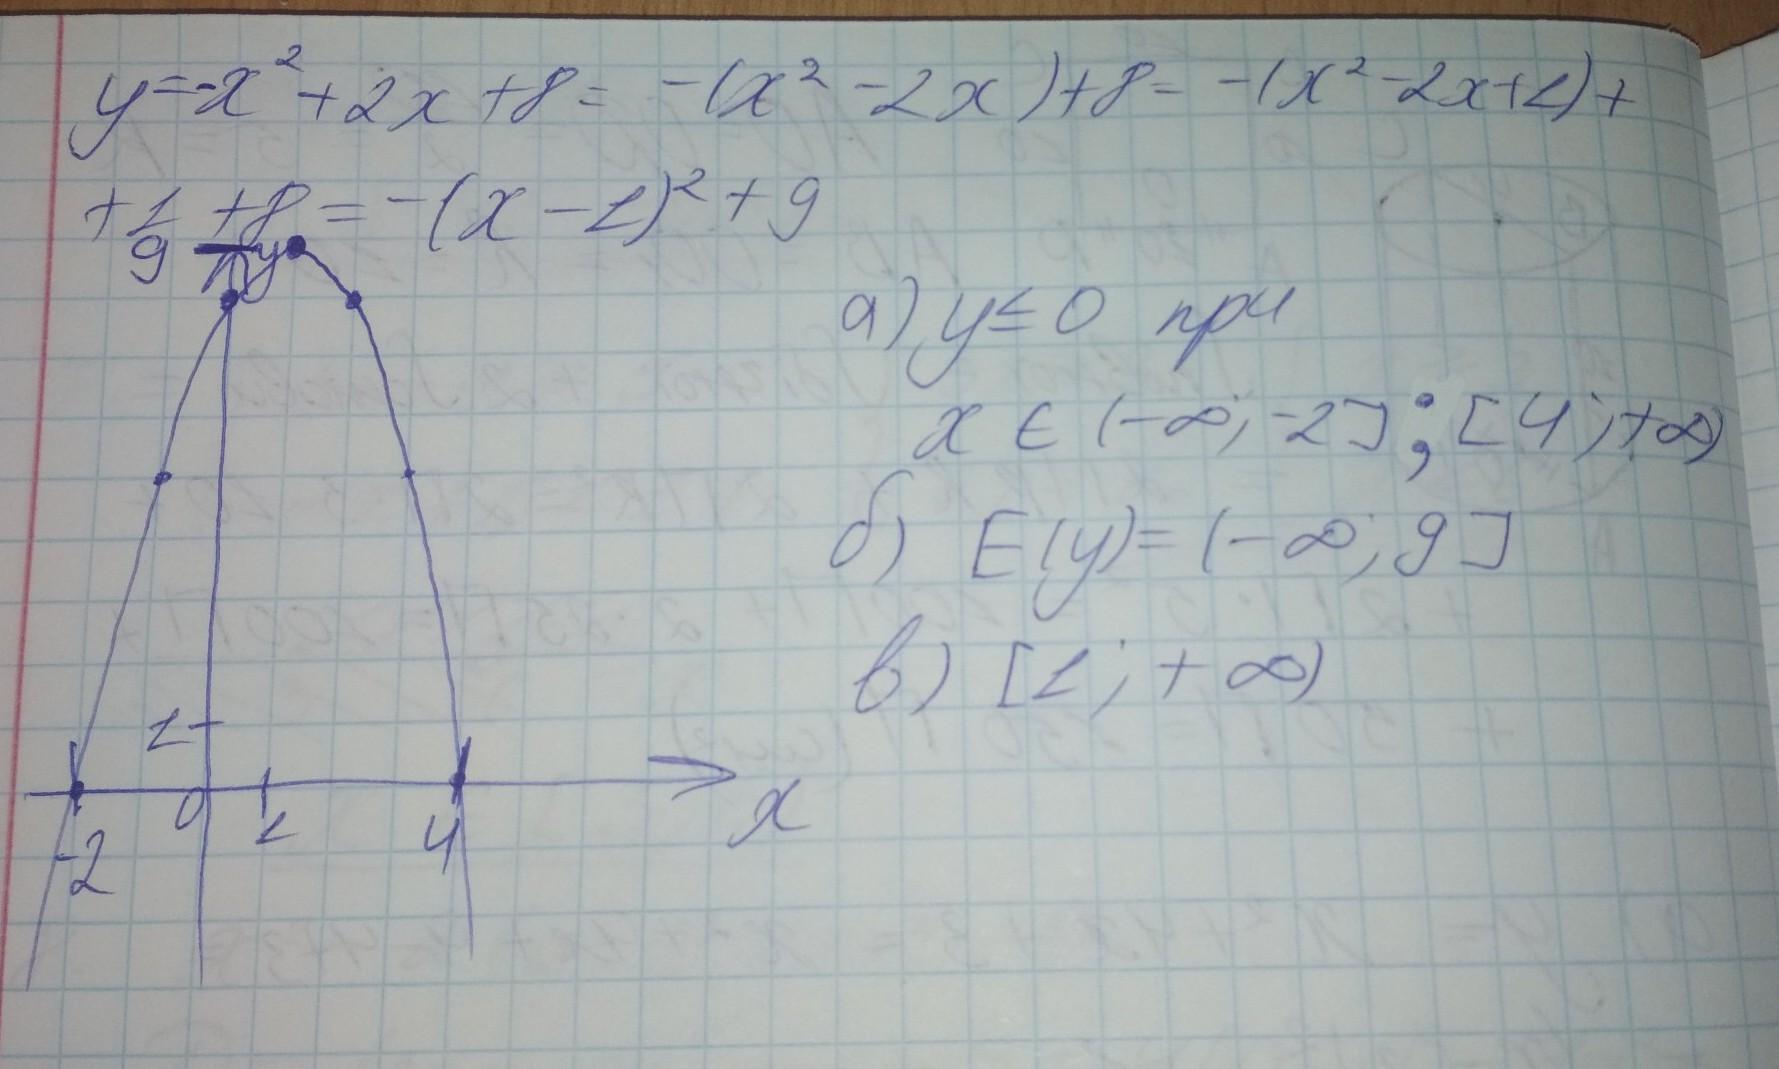 y=-x²+2x+8= -(x²-2x)+8= -(x²-2x+1)+
+1+8=-(x-1)²+9
9
y
а) y≤0 при
x ∈ (-∞; -2]; [4; +∞)
б) E(y)=(-∞; 9]
в) [1; +∞)
1
0
1
-2
4
x